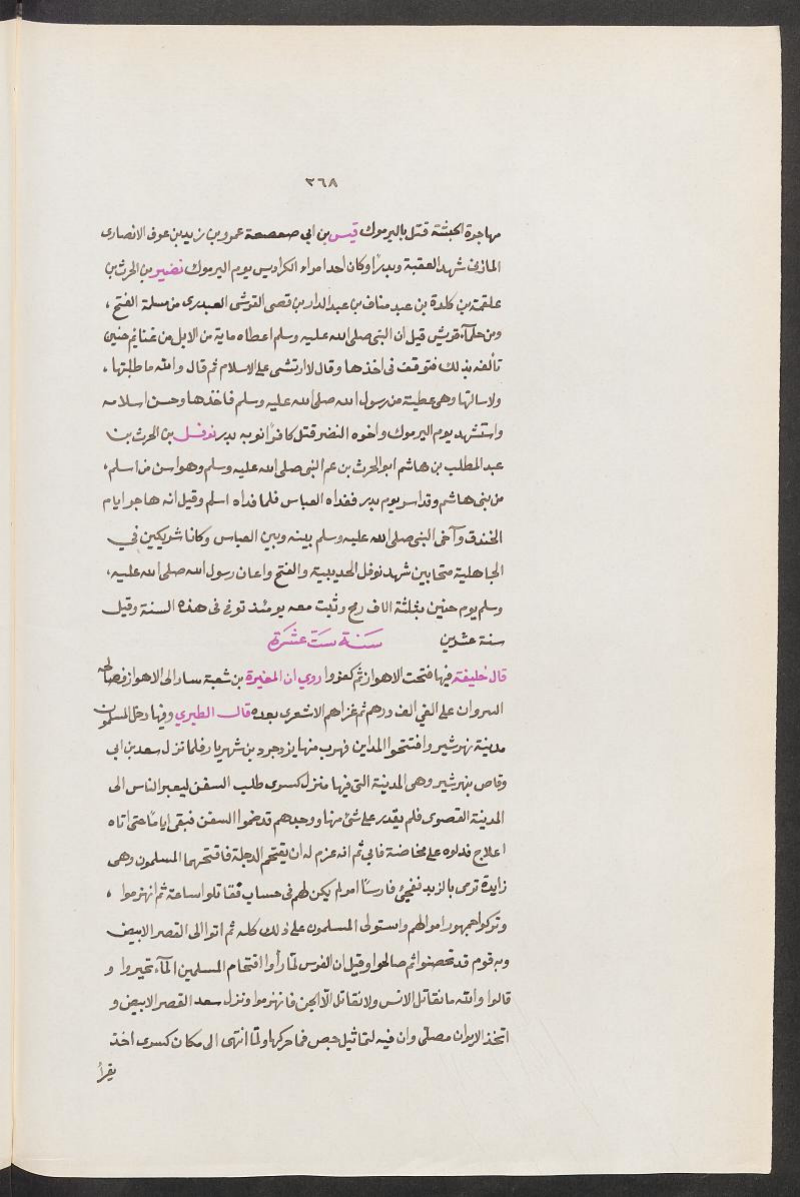 ٣٦٨
مهاجرة الحبشة قتل باليرموك قيس بن ابي صعصعة عمرو بن زيد بن عوف الانصارى
المازنى شهد العقبة وبدرًا وكان احد امراء الكراديس يوم اليرموك نضير بن الحرث بن
علقمة بن كلدة بن عبد مناف بن عبد الدار بن قصى القرشى العبدرى من مسلمة الفتح ،
ومن حلمآء قريش قيل ان النبى صلى الله عليه وسلم اعطاه ماية من الابل من غنايم حنين
تألفه بذلك فتوقف فى اخذها وقال لا ارتشى على الاسلام ثم قال والله ما طلبتها ،
ولا سالتها وهى عطية من رسول الله صلى الله عليه وسلم فاخذها وحسن اسلامه
واستشهد يوم اليرموك واخوه النضر قتل كافرًا نوبة بدر نوفل بن الحرث بن
عبد المطلب بن هاشم ابو الحرث بن عم النبى صلى الله عليه وسلم وهو اسن من اسلم ،
من بنى هاشم وقد اسر يوم بدر ففداه العباس فلما فداه اسلم وقيل انه هاجر ايام
الخندق وآخى النبى صلى الله عليه وسلم بينه وبين العباس وكانا شريكين في
الجاهلية متحابين شهد نوفل الحديبية والفتح واعان رسول الله صلى الله عليه ،
وسلم يوم حنين بثلثة الاف رمح وثبت معه يومئذ توفى فى هذه السنة وقيل
سنة عشرين سَنَة سَتَ عشَرَة
قال خليفة فيها فتحت الاهواز ثم كفروا روي ان المغيرة بن شعبة سار الى الاهواز فصالحه
البيروان على الفي الف درهم ثم غزاهم الاشعرى بعده قال الطبري وفيها دخل المسلمون
مدينة نهرشير وافتتحوا المداين فهرب منها يزدجرد بن شهريار فلما نزل سعد بن ابى
وقاص بنهرشير وهى المدينة التى فيها منزل كسرى طلب السفن ليعبر الناس الى
المدينة القصوى فلم يقدر على شئ منها ووجدهم قد ضموا السفن فبقى ايامًا حتى اتاه
اعلاج فدلوه على مخاضة فابى ثم انه عزم له ان يقتحم الدجلة فاقتحمها المسلمون وهى
زايدة ترمى بالزبد ففجئ فارسًا امر لم يكن لهم فى حساب فقاتلوا ساعة ثم انهزموا ،
وتركوا جمهور اموالهم واستولى المسلمون على ذلك كله ثم اتوا الى القصر الابيض
وبه قوم قد تحصنوا ثم صالحوا وقيل ان الفرس لمّا رأوا اقتحام المسلمين المآء تحيروا و
قالوا والله ما نقاتل الانس ولا نقاتل الّا الجن فانهزموا ونزل سعد القصر الابيض و
اتخذ الايوان مصلّى وان فيه لتماثيل جص فما حركها ولمّا انتهى الى مكان كسرى اخذ
يقرأ